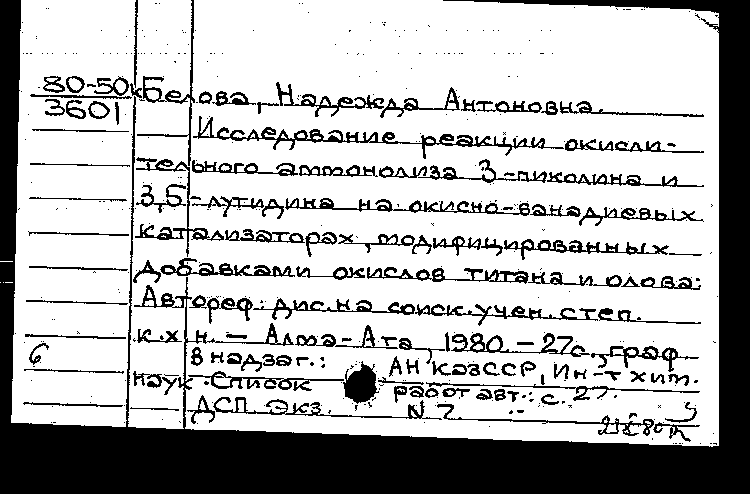 80-50к Белова, Надежда Антоновна.
3601
Исследование реакции окисли-
тельного аммонолиза 3-пиколина и
3,5-лутидина на окисно-ванадиевых
катализаторах, модифицированных
добавками окислов титана и олова:
Автореф. дис. на соиск. учен. степ.
к.х.н. — Алма-Ата, 1980. — 27с., граф.
6 В надзаг.: АН КазССР, Ин-т хим.
наук. Список работ авт.: с. 27.
ДСП. Экз. N 7.